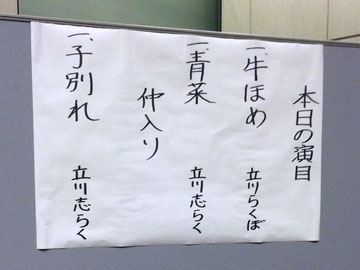 本日の演目
一、牛ほめ 立川らくぼ
一、青菜 立川志らく
仲入り
一、子別れ 立川志らく